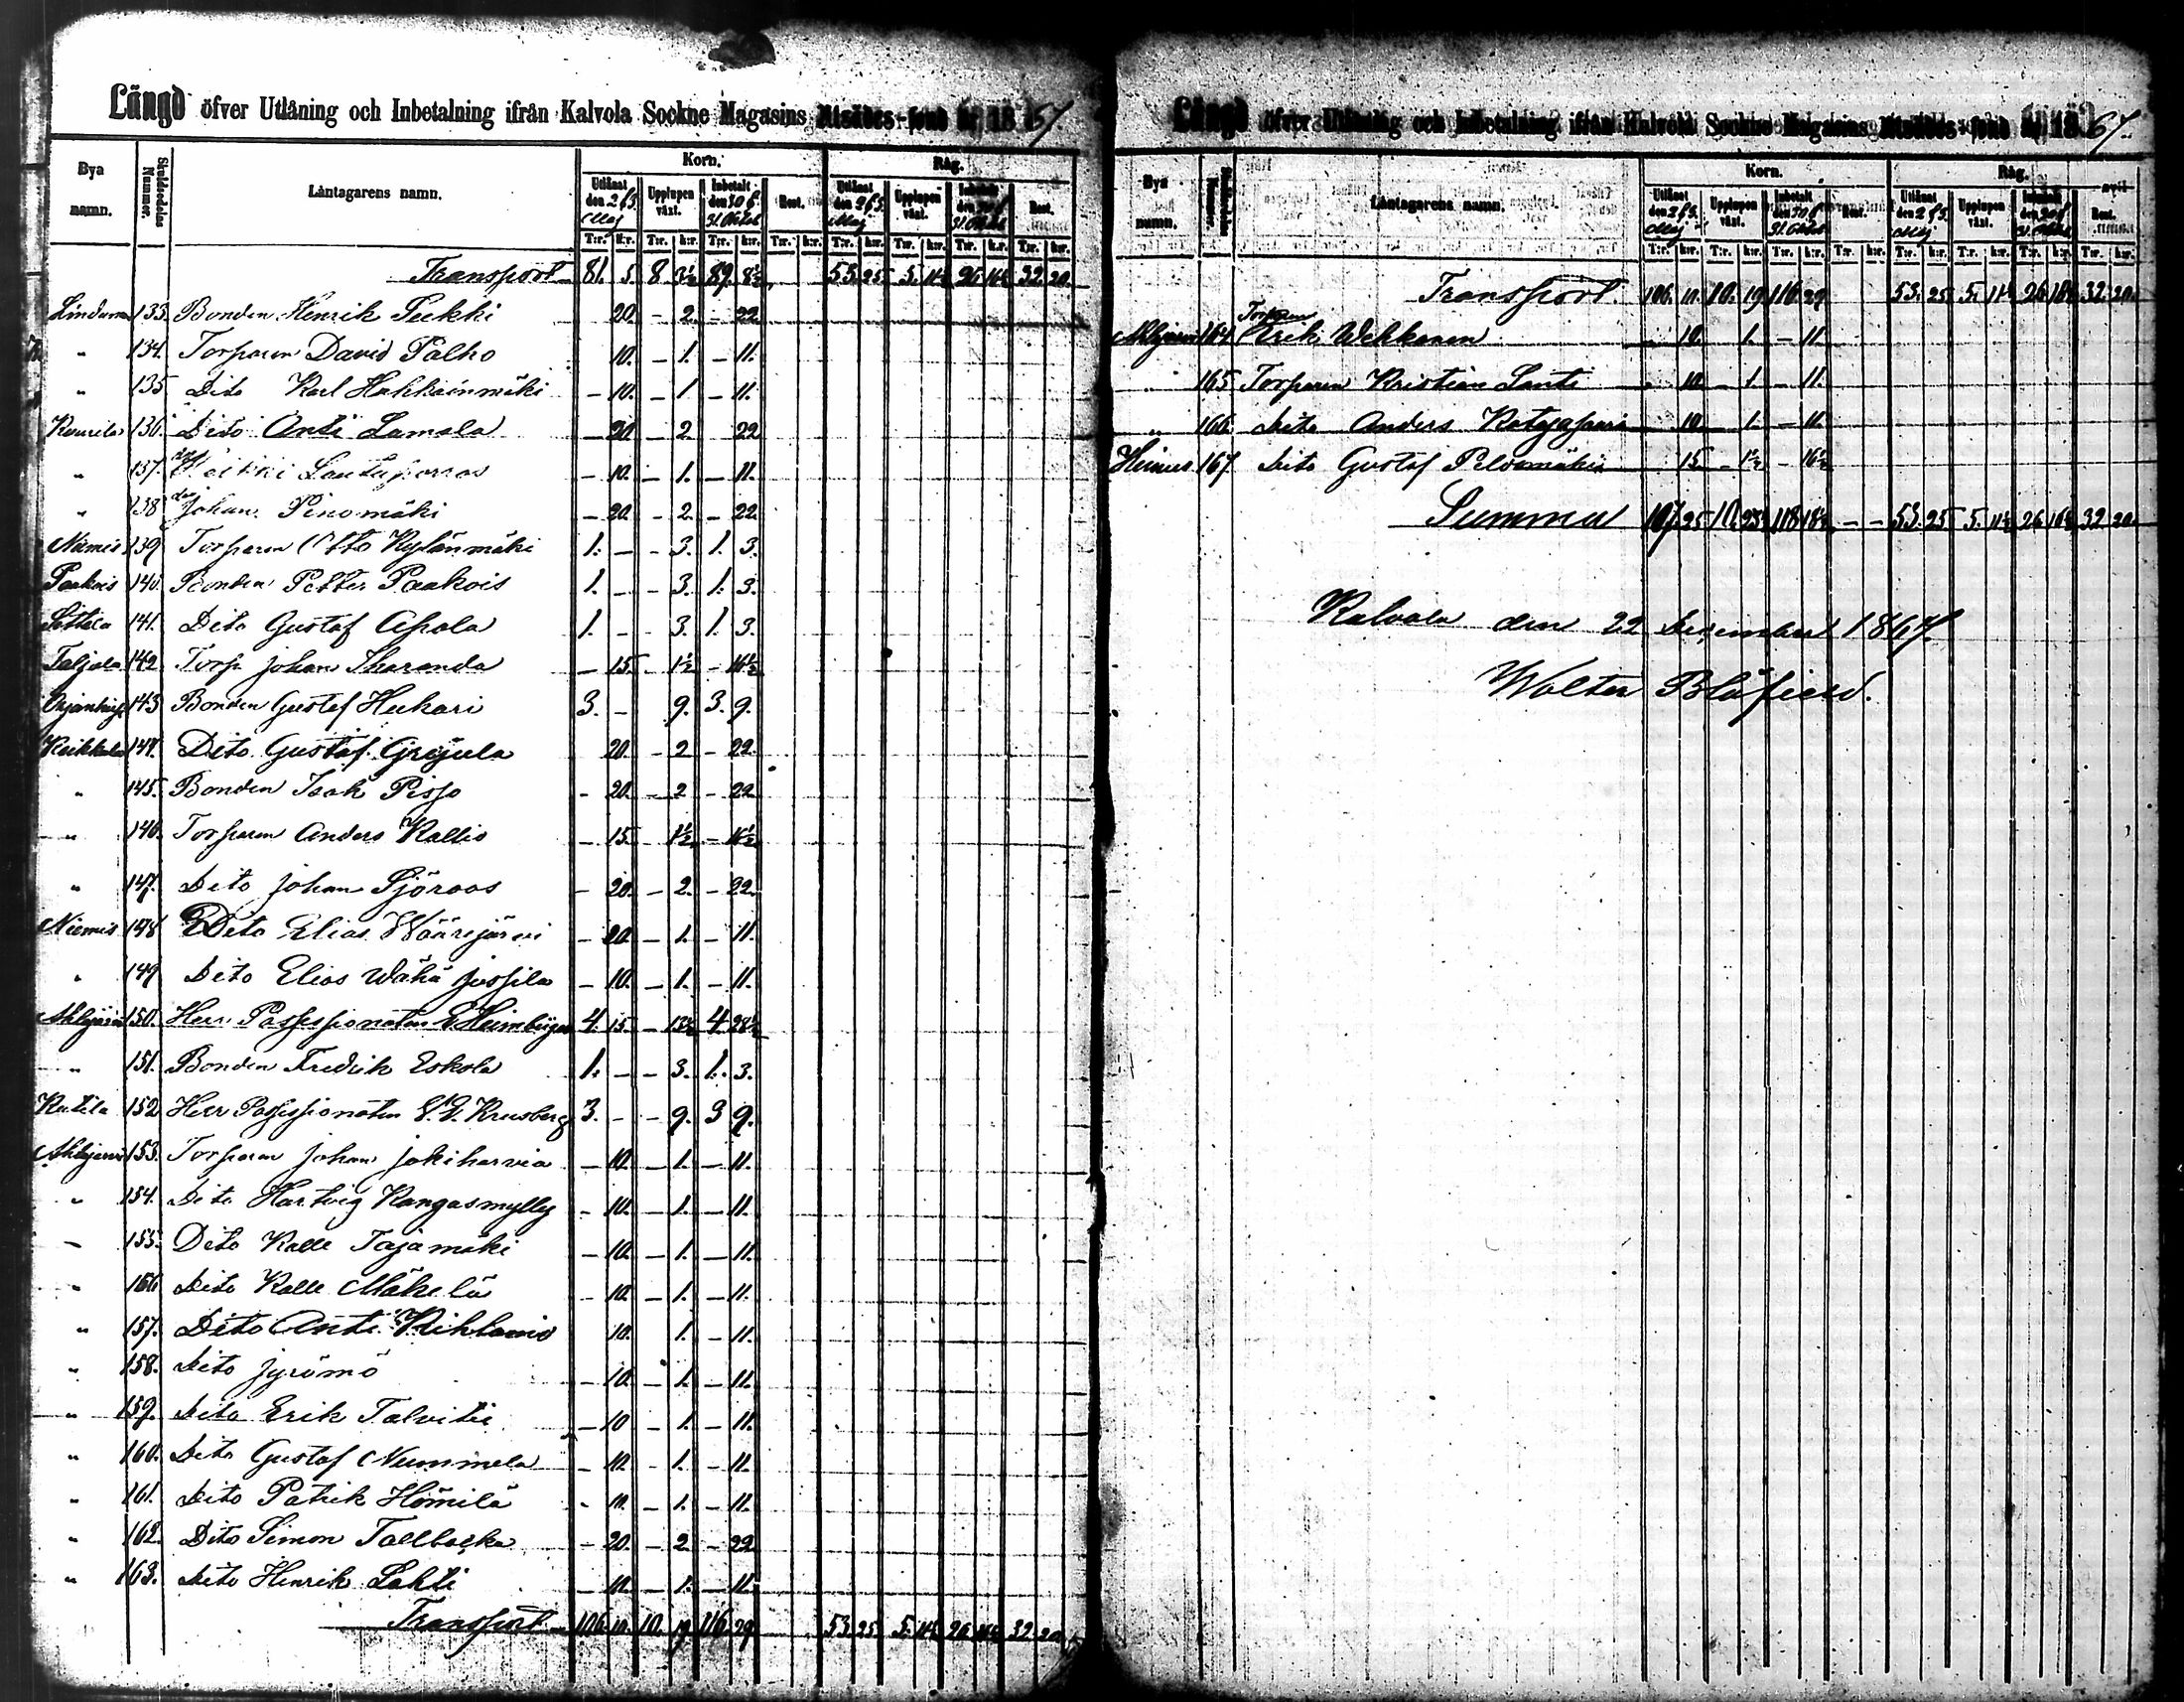 Längd öfver Utlåning och Inbetalning ifrån Kalvola Sockne Magasins Utsädes-fond år 1867.
Bya namn. Skuldsedels Nummer. Låntagarens namn. Korn. Råg.
Utlånt den 2 & 3 Maj Upplupen växt. Inbetalt den 30 & 31 Oktob Rest. Utlånt den 2 & 3 Maj Upplupen växt. Inbetalt den 30 & 31 Oktob Rest.
T:r. k:r. T:r. k:r. T:r. k:r. T:r. k:r. T:r. k:r. T:r. k:r. T:r. k:r. T:r. k:r.
Transport 81. 5. 8. 3½ 89. 8½ 53. 25. 5. 11½ 26 16½ 32. 20.
133. Bonden Henrik Pekki 20. - 2. - 22
" 134. Torparen David Palho 10. - 1. - 11.
" 135 Dito Karl Hakkainmäki - 10. - 1 - 11.
Kourila 136. Dito Anti Lamala - 20 - 2 22
" 137. do Heikki Lautaporras - 10. - 1. - 11.
" 138 do Johan Pinomäki - 20. - 2. - 22.
Niemis 139 Torparen Otto Kylänmäki 1. - - 3. 1. 3.
Paakois 140. Bonden Petter Paakois 1. - - 3. 1. 3.
Sittala 141. Dito Gustaf Apola 1. - - 3. 1. 3.
Taljala 142. Torp. Johan Skaranda - 15. - 1½ - 16½
143 Bonden Gustaf Hukari 3. - 9. 3. 9.
Keikkala 144. Dito Gustaf Grejula 20. - 2 - 22.
" 145. Bonden Isak Pisso - 20. - 2 - 22
" 146. Torparen Anders Kallio - 15. - 1½ - 16½
" 147. Dito Johan Sjöroos - 20. - 2. - 22.
Niemis 148 Dito Elias Wäärejärvi - 20. - 1. - 11.
" 149 Dito Elias Wähä Jussila - 10. - 1. - 11.
Ahlajärvi 150. Herr Possessionaten E Heimbürger 4. 15. - 13½ 4. 28½
" 151. Bonden Fredrik Eskola 1. - - 3. 1. 3.
Kutila 152 Herr Possessionaten E. W. Krusberg 3. - - 9. 3 9.
Ahlajärvi 153. Torparen Johan Jokiharvia - 10. - 1. - 11.
" 154. Dito Hartvig Kangasmylly - 10. - 1. - 11.
" 155. Dito Kalle Tajamäki - 10. - 1. - 11.
" 156 Dito Kalle Mäkelä - 10. - 1. - 11.
" 157. Dito Anti Kihlanio 10. - 1. - 11.
" 158. Dito Jyrömö - 10. - 1. - 11.
" 159. Dito Erik Talvitie - 10 - 1. - 11.
" 160. Dito Gustaf Nummela - 10. - 1. - 11.
" 161. Dito Patrik Hömilä - 10. - 1. - 11.
" 162. Dito Simon Tallbacka - 20. - 2. - 22
" 163. Dito Henrik Lahti - 10. - 1. - 11.
Transport 106. 10. 10. 19 116. 29 53. 25. 5. 11½ 26. 16½ 32. 20.
Längd öfver Utlåning och Inbetalning ifrån Kalvola Sockne Magasins Utsädes-fond år 1867.
Bya namn. Nummer. Låntagarens namn. Korn. Råg.
Utlånt den 2 & 3 Maj Upplupen växt. Inbetalt den 30 & 31 Oktob Rest. Utlånt den 2 & 3 Maj Upplupen växt. Inbetalt den 30 & 31 Oktob Rest.
T:r. k:r. T:r. k:r. T:r. k:r. T:r. k:r. T:r. k:r. T:r. k:r. T:r. k:r. T:r. k:r.
Transport. 106. 10. 10. 19 116. 29. 53. 25 5. 11½ 26 16½ 32. 20.
Ahlajärvi 164 Torparen Erik Wehkanen - 10. 1. - 11
" 165 Torparen Kristian Lanti - 10. - 1. - 11.
" 166. Dito Anders Katajasaari 10. - 1. - 11.
Heinus 167 Dito Gustaf Peldomäki 15. - 1½ - 16½
Summa 107. 25 10. 23½ 118 18½ - - 53. 25 5. 11½ 26 16½ 32 20.
Kalvola den 22 December 1867.
Walter Blåfield.